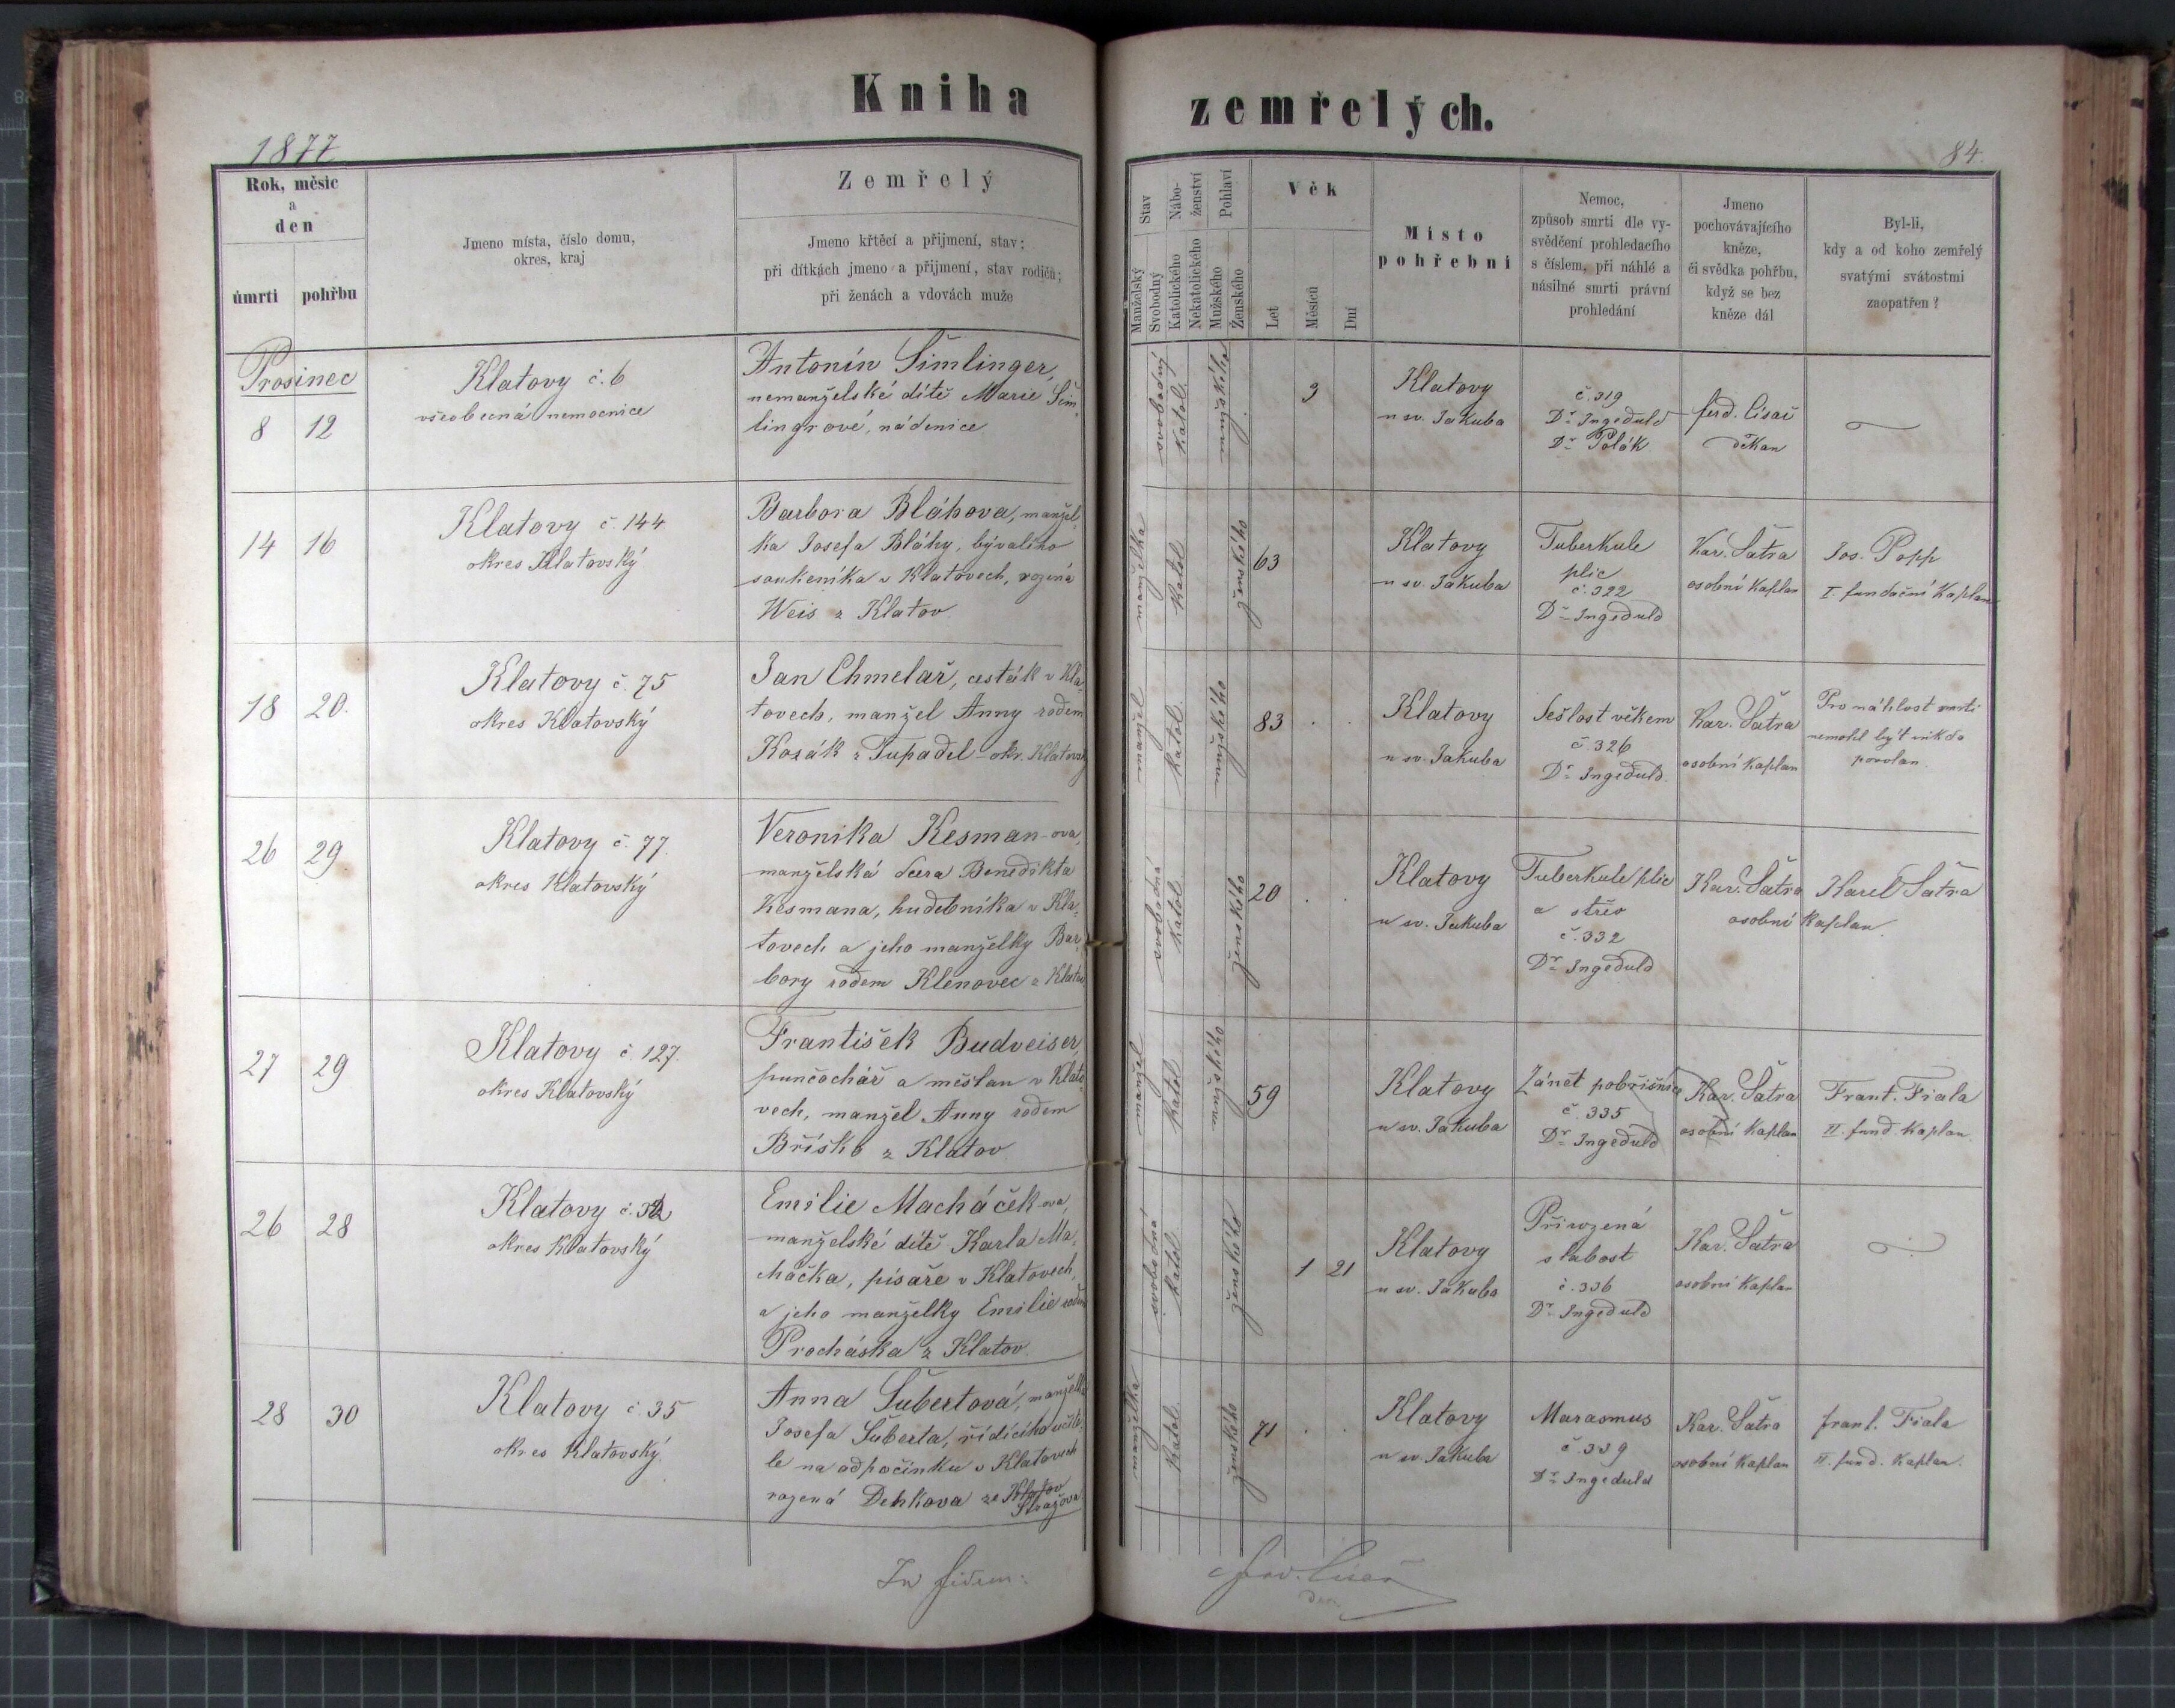 Kniha zemřelých.
1877
84.
Rok, měsíc
a
den
úmrtí pohřbu
Jmeno místa, číslo domu,
okres, kraj
Zemřelý
Jmeno křtěcí a přijmení, stav;
při dítkách jmeno a přijmení, stav rodičů;
při ženách a vdovách muže
Stav
Manželský
Svobodný
Nábo-
ženství
Katolického
Nekatolického
Pohlaví
Mužského
Ženského
Věk
Let
Měsíců
Dní
Místo
pohřební
Nemoc,
způsob smrti dle vy-
svědčení prohledacího
s číslem, při náhlé a
násilné smrti právní
prohledání
Jmeno
pochovávajícího
kněze,
či svědka pohřbu,
když se bez
kněze dál
Byl-li,
kdy a od koho zemřelý
svatými svátostmi
zaopatřen?
Prosinec
8 12
Klatovy č. 6
všeobecná nemocnice
Antonín Šimlinger,
nemanželské dítě Marie Šim-
lingrové, nádenice
svobodný
katol.
mužského
3
Klatovy
u sv. Jakuba
č. 319
Dr. Ingeduld
Dr. Polák
ferd. Císař
děkan
14 16
Klatovy č. 144
okres Klatovský
Barbora Bláhova, manžel
ka Josefa Bláhy, bývalého
soukeníka v Klatovech, rozená
Weis z Klatov
manželka
katol
ženského
63
Klatovy
u sv. Jakuba
Tuberkule
plic
č. 322
Dr. Ingeduld
Kar. Šatra
osobní kaplan
Jos. Popp
I. fundační kaplan
18 20.
Klatovy č. 75
okres Klatovský
Jan Chmelař, cesták v Kla-
tovech, manžel Anny rodem
Kozák z Tupadel okr. Klatovský
manžel
katol
mužského
83 . .
Klatovy
u sv. Jakuba
Sešlost věkem
č. 326
Dr. Ingeduld.
Kar. Šatra
osobní kaplan
Pro náhlost smrti
nemohl být nikdo
povolan.
26 29
Klatovy č. 77.
okres Klatovský
Veronika Kesman-ova,
manželská dcera Benedikta
Kesmana, hudebníka v Kla-
tovech a jeho manželky Bar-
bory rodem Klenovec z Klatov
svobodná
katol
ženského
20 . .
Klatovy
u sv. Jakuba
Tuberkule plic
a střev
č. 332
Dr. Ingeduld
Kar. Šatra
osobní kaplan.
Karel Šatra
27 29
Klatovy č. 127.
okres Klatovský
František Budveiser,
punčochář a měšťan v Klato-
vech, manžel Anny rodem
z Klatov
manžel
katol
mužského
59
Klatovy
u sv. Jakuba
Zánět pobřišnice
č. 335
Dr. Ingeduld
Kar. Šatra
osobní kaplan
Frant. Fiala
II. fund. kaplan.
26 28
Klatovy č.
okres Klatovský
Emilie Macháček-ova,
manželské dítě Karla Ma-
cháčka, písaře v Klatovech,
a jeho manželky Emilie rodem
Procháska z Klatov
svobodná
katol
ženského
1 21
Klatovy
u sv. Jakuba
Přirozená
slabost
č. 336
Dr. Ingeduld
Kar. Šatra
osobní kaplan
28 30
Klatovy č. 35
okres Klatovský.
Anna Šubertová, manželka
Josefa Šuberta, řídícího učite-
le na odpočinku v Klatovech
rozená ze Klatov
Stražova
manželka
katol
ženského
71 . .
Klatovy
u sv. Jakuba
Marasmus
č. 339
Dr. Ingeduld
Kar. Šatra
osobní kaplan
frant. Fiala
II. fund. kaplan.
In fidem:
ferd. Císař